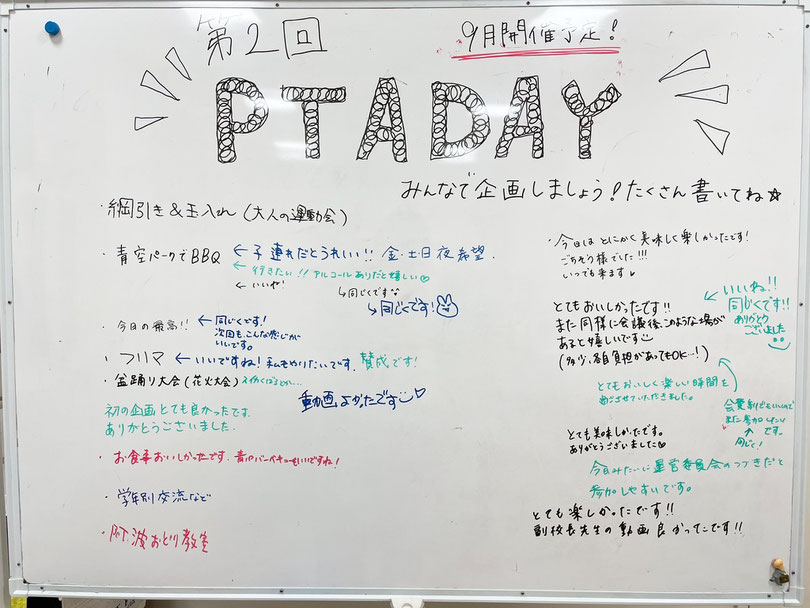 第2回
9月開催予定!
PTADAY
みんなで企画しましょう!たくさん書いてね☆
・綱引き&玉入れ(大人の運動会)
・青空パークでBBQ ←子連れだとうれしい!! 金・土・日夜希望.
←行きたい!!アルコールありだと嬉しい♡
←いいね!
↳同じくです
↳同じくです!
・今日の最高!! ←同じくです!
次回もこんな感じが
いいです。
・フリマ ←いいですね!私もやりたいです. 賛成です!
・盆踊り大会(花火大会)
動画よかったです♡
初の企画とても良かったです.
ありがとうございました.
・お食事おいしかったです.青空バーベキューもいいですね!
・学年別交流など
・阿波おどり教室
・今日はとにかく美味しく楽しかったです!
ごちそう様でした!!!
いつでも来ます♥
とてもおいしかったです!!
また同様に会議後、このような場が
あると嬉しいです
(多少、各自負担があってもOK…!)
←いいね!!
同じくです!!
ありがとう
ございました
とてもおいしく楽しい時間を
過ごさせていただきました。
会費制でもいいので
また参加したい
です。
↑
同じく!
とても美味しかったです。
ありがとうございました♡
今日みたいに運営委員会のつづきだと
参加しやすいです。
とても楽しかったです!!
副校長先生の動画良かったです!!